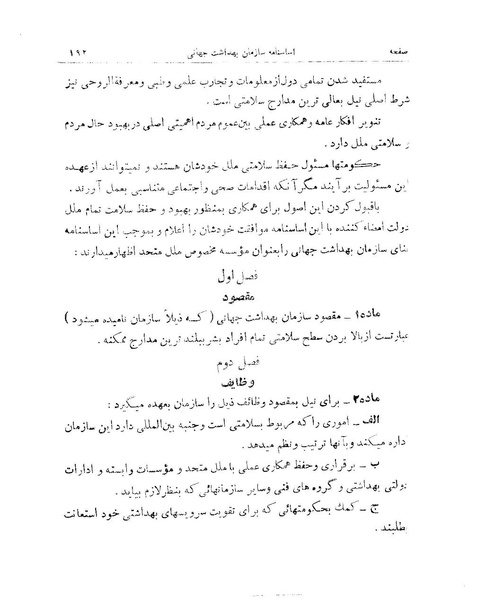 صفحه اساسنامه سازمان بهداشت جهانی ۱۹۲
مستفید شدن تمامی دول از معلومات و تجارب علمی و طبی و معرفةالروحی نیز
شرط اصلی نیل بعالی ترین مدارج سلامتی است .
تنویر افکار عامه و همکاری عملی بین عموم مردم اهمیتی اصلی در بهبود حال مردم
و سلامتی ملل دارد .
حکومتها مسئول حفظ سلامتی ملل خودشان هستند و نمیتوانند از عهده
این مسئولیت برآیند مگر آنکه اقدامات صحی و اجتماعی متناسبی بعمل آورند .
باقبول کردن این اصول برای همکاری بمنظور بهبود و حفظ سلامت تمام ملل
دولت امضاء کننده با این اساسنامه موافقت خودشان را اعلام و بموجب این اساسنامه
بنای سازمان بهداشت جهانی را بعنوان مؤسسه مخصوص ملل متحد اظهار میدارند :
فصل اول
مقصود
ماده۱ ــ مقصود سازمان بهداشت جهانی ( که ذیلاً سازمان نامیده میشود )
عبارتست از بالا بردن سطح سلامتی تمام افراد بشر ببلند ترین مدارج ممکنه .
فصل دوم
وظایف
ماده۲ ــ برای نیل بمقصود وظائف ذیل را سازمان بعهده میگیرد :
الف ــ اموری را که مربوط بسلامتی است و جنبه بین‌المللی دارد این سازمان
داره میکند و بآنها ترتیب و نظم میدهد .
ب ــ برقراری و حفظ همکاری عملی با ملل متحد و مؤسسات وابسته و ادارات
دولتی بهداشتی و گروه های فنی و سایر سازمانهائی که بنظر لازم بیاید .
ج ــ کمك بحکومتهائی که برای تقویت سرویسهای بهداشتی خود استعانت
بطلبند .